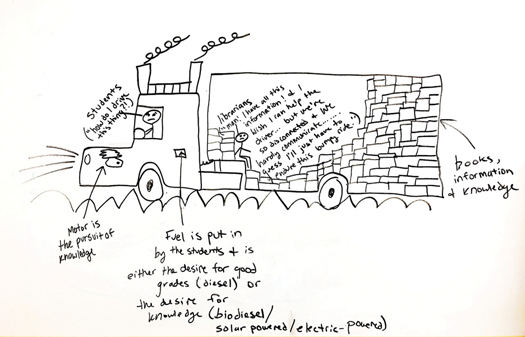 Students
("how do I drive
this thing?!)
librarians
I have all this
information! & I
wish I can help the
driver... but we're
so disconnected & we
hardly communicate......
guess I'll just have to
endure this bumpy ride..")
books,
information
& knowledge
Motor is
the pursuit of
knowledge
Fuel is put in
by the students & is
either the desire for good
grades (diesel) or
the desire for
knowledge (biodiesel/
solar powered/electric-powered)